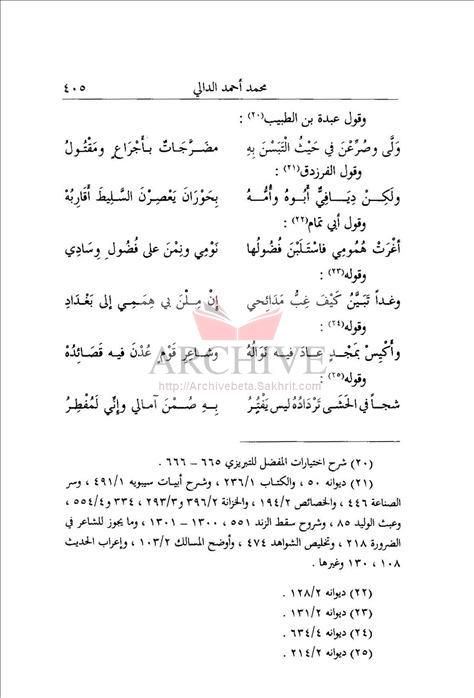 محمد أحمد الدالي ٤٠٥
وقول عبدة بن الطبيب(٢٠) :
وَلَّى وصُرِّعْنَ في حَيْثُ الْتَبَسْنَ بِهِ مضَرَّجَاتٌ بأَجْرَاعٍ ومَقْتُولُ
وقول الفرزدق(٢١) :
ولَكِنْ دِيَافِيٌّ أَبُوهُ وأُمُّهُ بِحَوْرَانَ يَعْصِرْنَ السَّلِيطَ أَقَارِبُهْ
وقول أبي تمام(٢٢) :
أغْرَتْ هُمُومِي فاسْتَلَبْنَ فُضُولُها نَوْمِي ونِمْنَ على فُضُولِ وِسَادِي
وقوله(٢٣) :
وغداً تَبَيَّنُ كَيْفَ غِبُّ مَدَائِحي إِنْ مِلْنَ بي هِمَمِي إلى بَغْدَادِ
وقوله(٢٤) :
وأَكْيِسْ بمَجْدٍ عادَ فيه نَوَالُهُ وشاعِرِ قَوْمٍ عُدْنَ فيه قَصَائِدُهْ
ARCHIVE
http://Archivebeta.Sakhrit.com
وقوله(٢٥) :
شجاً في الحَشَى تَرْدَادُهُ ليس يَفْتُرُ بِهِ صُمْنَ آمالي وإنِّي لَمُفْطِرُ
(٢٠) شرح اختيارات المفضل للتبريزي ٦٦٥ – ٦٦٦ .
(٢١) ديوانه ٥٠ ، والكتاب ٢٣٦/١ ، وشرح أبيات سيبويه ٤٩١/١ ، وسر
الصناعة ٤٤٦ ، والخصائص ١٩٤/٢ ، والخزانة ٣٩٦/٢ و٢٩٣/٣ ، ٣٣٤ و٥٥٤/٤ ،
وعبث الوليد ٨٥ ، وشروح سقط الزند ٥٥١ ، ١٣٠٠ – ١٣٠١ ، وما يجوز للشاعر في
الضرورة ٢١٨ ، وتخليص الشواهد ٤٧٤ ، وأوضح المسالك ١٠٣/٢ ، وإعراب الحديث
١٠٨ ، ١٣٠ وغيرها .
(٢٢) ديوانه ١٢٨/٢ .
(٢٣) ديوانه ١٣١/٢ .
(٢٤) ديوانه ٦٣٤/٤ .
(٢٥) ديوانه ٢١٤/٢ .